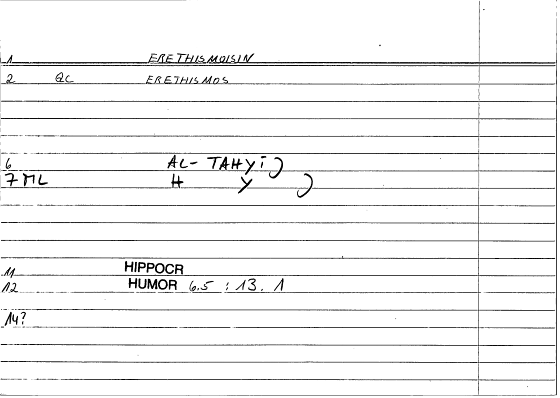 1 ERETHISMOISIN
2 QC ERETHISMOS
6 AL- TAHYiJ
7 ML H Y J
11 HIPPOCR
12 HUMOR 6.5 : 13. 1
14?